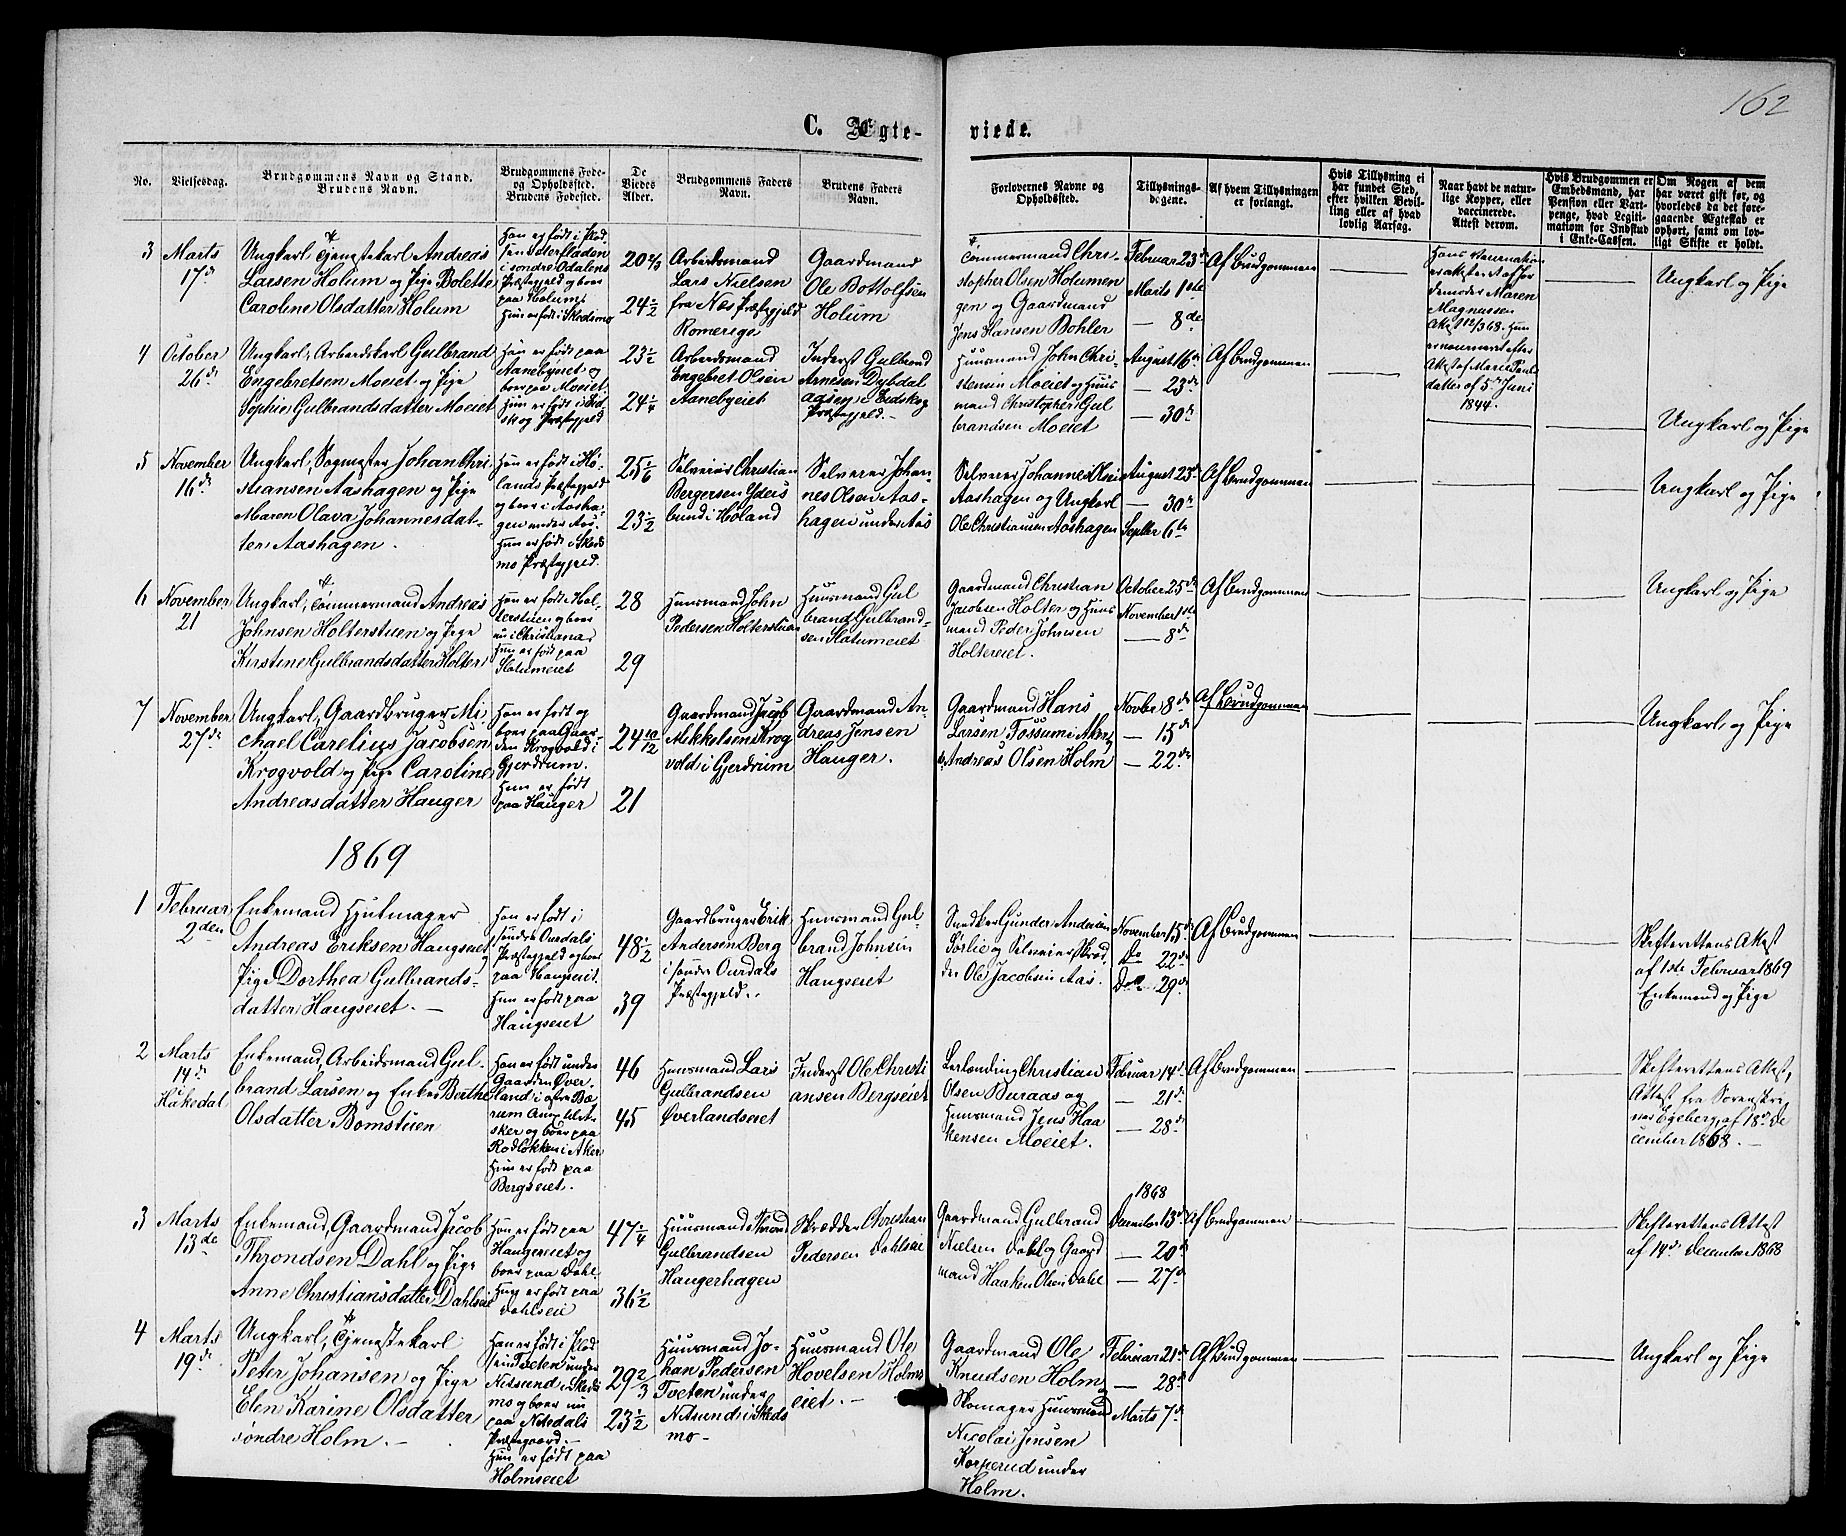 162
C. Ægte-
viede.
No.
Vielsesdag.
Brudgommens Navn og Stand.
Brudens Navn.
Brudgommens Føde-
og Opholdssted.
Brudens Fødested.
De
Viedes
Alder.
Brudgommens Faders
Navn.
Brudens Faders
Navn.
Forlovernes Navne og
Opholdssted.
Tillysnings-
dagene.
Af hvem Tillysningen
er forlangt.
Hvis Tillysning ei
har fundet Sted,
efter hvilken Bevil-
ling eller af hvad
lovlig Aarsag.
Naar havt de natur-
lige Kopper, eller
vaccinerede.
Attest derom.
Hvis Brudgommen er
Embedsmand, har
Pension eller Vart-
penge, hvad Legiti-
mation for Indskud
i Enke-Cassen.
Om Nogen af dem
har været gift før, og
hvorledes da det fore-
gaaende Ægteskab er
ophørt, samt om lov-
ligt Skifte er holdt.
3
Marts
17d
Ungkarl, Tjenestekarl Andreas
Larsen Holum og Pige Bolette
Caroline Olsdatter Holum
Han er født i
i søndre Odalens
Præstegjeld og boer
paa Holum.
Hun er født i Skedsmo
20 2/3
24 1/2
Arbeidsmand
Lars Nielsen
fra Næs Præstegjeld
Romerige
Gaardmand
Ole Bottolfsen
Holum
Tømmermand Chri-
stopher Olsen Holumen
gen og Gaardmand
Jens Hansen Bøhler
Februar 23d
Marts 1ste
— 8de
Af Brudgommen
Hans Vaccination
er attesteret af Jor
demoder Maren
Magnussen
Hun
er vaccineret efter
Attest af Marie Pauls
datter af 5te Juni
1844.
Ungkarl og Pige
4
October
26d
Ungkarl, Arbeidskarl Gulbrand
Engebretsen Moeiet og Pige
Sophie Gulbrandsdatter Moeiet
Han er født paa
Aanebyeiet og
boer paa Moeiet
Hun er født i Eid
skog Præstegjeld
23 1/2
24 1/4
Arbeidsmand
Engebret Olsen
Aanebyeiet
Inderst Gulbrand
Arnesen Dybdal
aasen i Eidskog
Præstegjeld.-
Huusmand John Chri-
stensen Moeiet og Huus
mand Christopher Gul
brandsen Moeiet
August 16de
— 23de
— 30d
Af Brudgommen
Ungkarl og Pige
5
November
16d
Ungkarl, Sagmester Johan Chri
stiansen Aashagen og Pige
Maren Olava Johannesdat-
ter Aashagen.
Han er født i Hø-
lands Præstegjeld
og boer i Aasha-
gen under Aas
Hun er født i Skeds
mo Præstegjeld.
25 1/6
23 1/2
Selveier Christian
Bergersen Yders
bund i Høland
Selveier Johan-
nes Olsen Aas-
hagen under Aas
Selveier Johannes Olsen
Aashagen og Ungkarl
Ole Christiansen Aashagen
August 23d
— 30d
Septbr 6te
Af Brudgommen
Ungkarl og Pige
6
November
21
Ungkarl, Tømmermand Andreas
Johnsen Holterstuen og Pige
Kirstine Gulbrandsdatter Holter
Han er født i Hol-
terstuen og boer
nu i Christiania
Hun er født paa
Slatumeiet
28
29
Huusmand John
Pedersen Holterstuen
Huusmand Gul
brand Gulbrand-
sen Slatumeiet
Gaardmand Christian
Jacobsen Holter og Huus
mand Peder Johnsen
Holtereiet.
October 25de
November 1ste
— 8de
Af Brudgommen
Ungkarl og Pige
7
November
27de
Ungkarl, Gaardbruger Mi-
chael Carelius Jacobsen
Krogvold og Pige Caroline
Andreasdatter Hauger
Han er født og
boer paa Gaar-
den Krogvold i
Gjerdrum.
Hun er født
paa Hauger
24 10/12
21
Gaardmand Jacob
Mikkelsen Krog
vold i Gjerdrum
Gaardmand An-
dreas Jensen
Hauger.
Gaardmand Hans
Larsen Fossum i Aker
Andreas Olsen Holm
Novbr 8de
— 15de
— 22de
Af Brudgommen
Ungkarl og Pige
1869
1
Februar
2den
Enkemand Hjulmager
Andreas Eriksen Haugseiet og
Pige Dorthea Gulbrands-
datter Haugseiet. —
Han er født i
søndre Ourdals
Præstegjeld og boer
paa Haugseiet.
Hun er født paa
Haugseiet
48 1/2
39
Gaardbruger Erik
Andersen Berg
i søndre Ourdals
Præstegjeld.
Huusmand Gul-
brand Johnsen
Haugseiet
Snedker Gunder Andersen
Sørlie og Selveier Skræd
der Ole Jacobsen Aas.
November 15d
Do 22de
Do 29de
Af Brudgommen
Skifterettens Attest
af 1ste Februar 1869
Enkemand og Pige
2
Marts
14de
Hakedal
Enkemand, Arbeidsmand Gul-
brand Larsen og Enke Berthe
Olsdatter Bomstuen
Han er født under
Gaarden Øver-
land i østre Bæ-
rum Annex til A-
sker og boer paa
Rodeløkken i Aker
Hun er født paa
Bergseiet.
46
45
Huusmand Lars
Gulbrandsen
Øverlandseiet
Inderst Ole Christi
ansen Bergseiet
Leilending Christian
Olsen Buraas og
Huusmand Jens Haa
kensen Moeiet.
Februar 14d
— 21de
— 28de
Af Brudgommen
Skifterettens Attest,
Attest fra Sorenskri-
ver Egeberg, af 18d De
cember 1868. —
3
Marts
13de
Enkemand, Gaardmand Jacob
Throndsen Dahl og Pige
Anne Christiansdatter Dahlseie
Han er født paa
Haugereiet og
boer paa Dahl.
Hun er født paa
Dahlseie
47 1/4
36 1/2
Huusmand Thrond
Gulbrandsen
Haugerhagen
Skrædder Christian
Pedersen Dahlseie
Gaardmand Gulbrand
Nielsen Dahl og Gaard
mand Haaken Olsen Dahl
1868
December 13d
— 20de
— 27de
Af Brudgommen
Skifterettens Attest
af 14de December 1868
4
Marts
19de
Ungkarl, Tjenestekarl
Peter Johansen og Pige
Elen Karine Olsdatter
søndre Holm. —
Han er født i Plad
sen Tveten under
Nitsund i Skeds
mo og boer nu
paa Nitedals
Præstegaard.—
Hun er født paa
Holmseiet
29 2/3
23 1/2
Huusmand Jo-
han Pedersen
Tveten under
Nitsund i Skeds
mo-
Huusmand Ole
Hovelsen Holms
eiet. —
Gaardmand Ole
Knudsen Holm
Skomager Huusmand
Nicolai Jensen
Korperud under
Holm.
Februar 21de
— 28d
Marts 7de
Af Brudgommen
Ungkarl og Pige